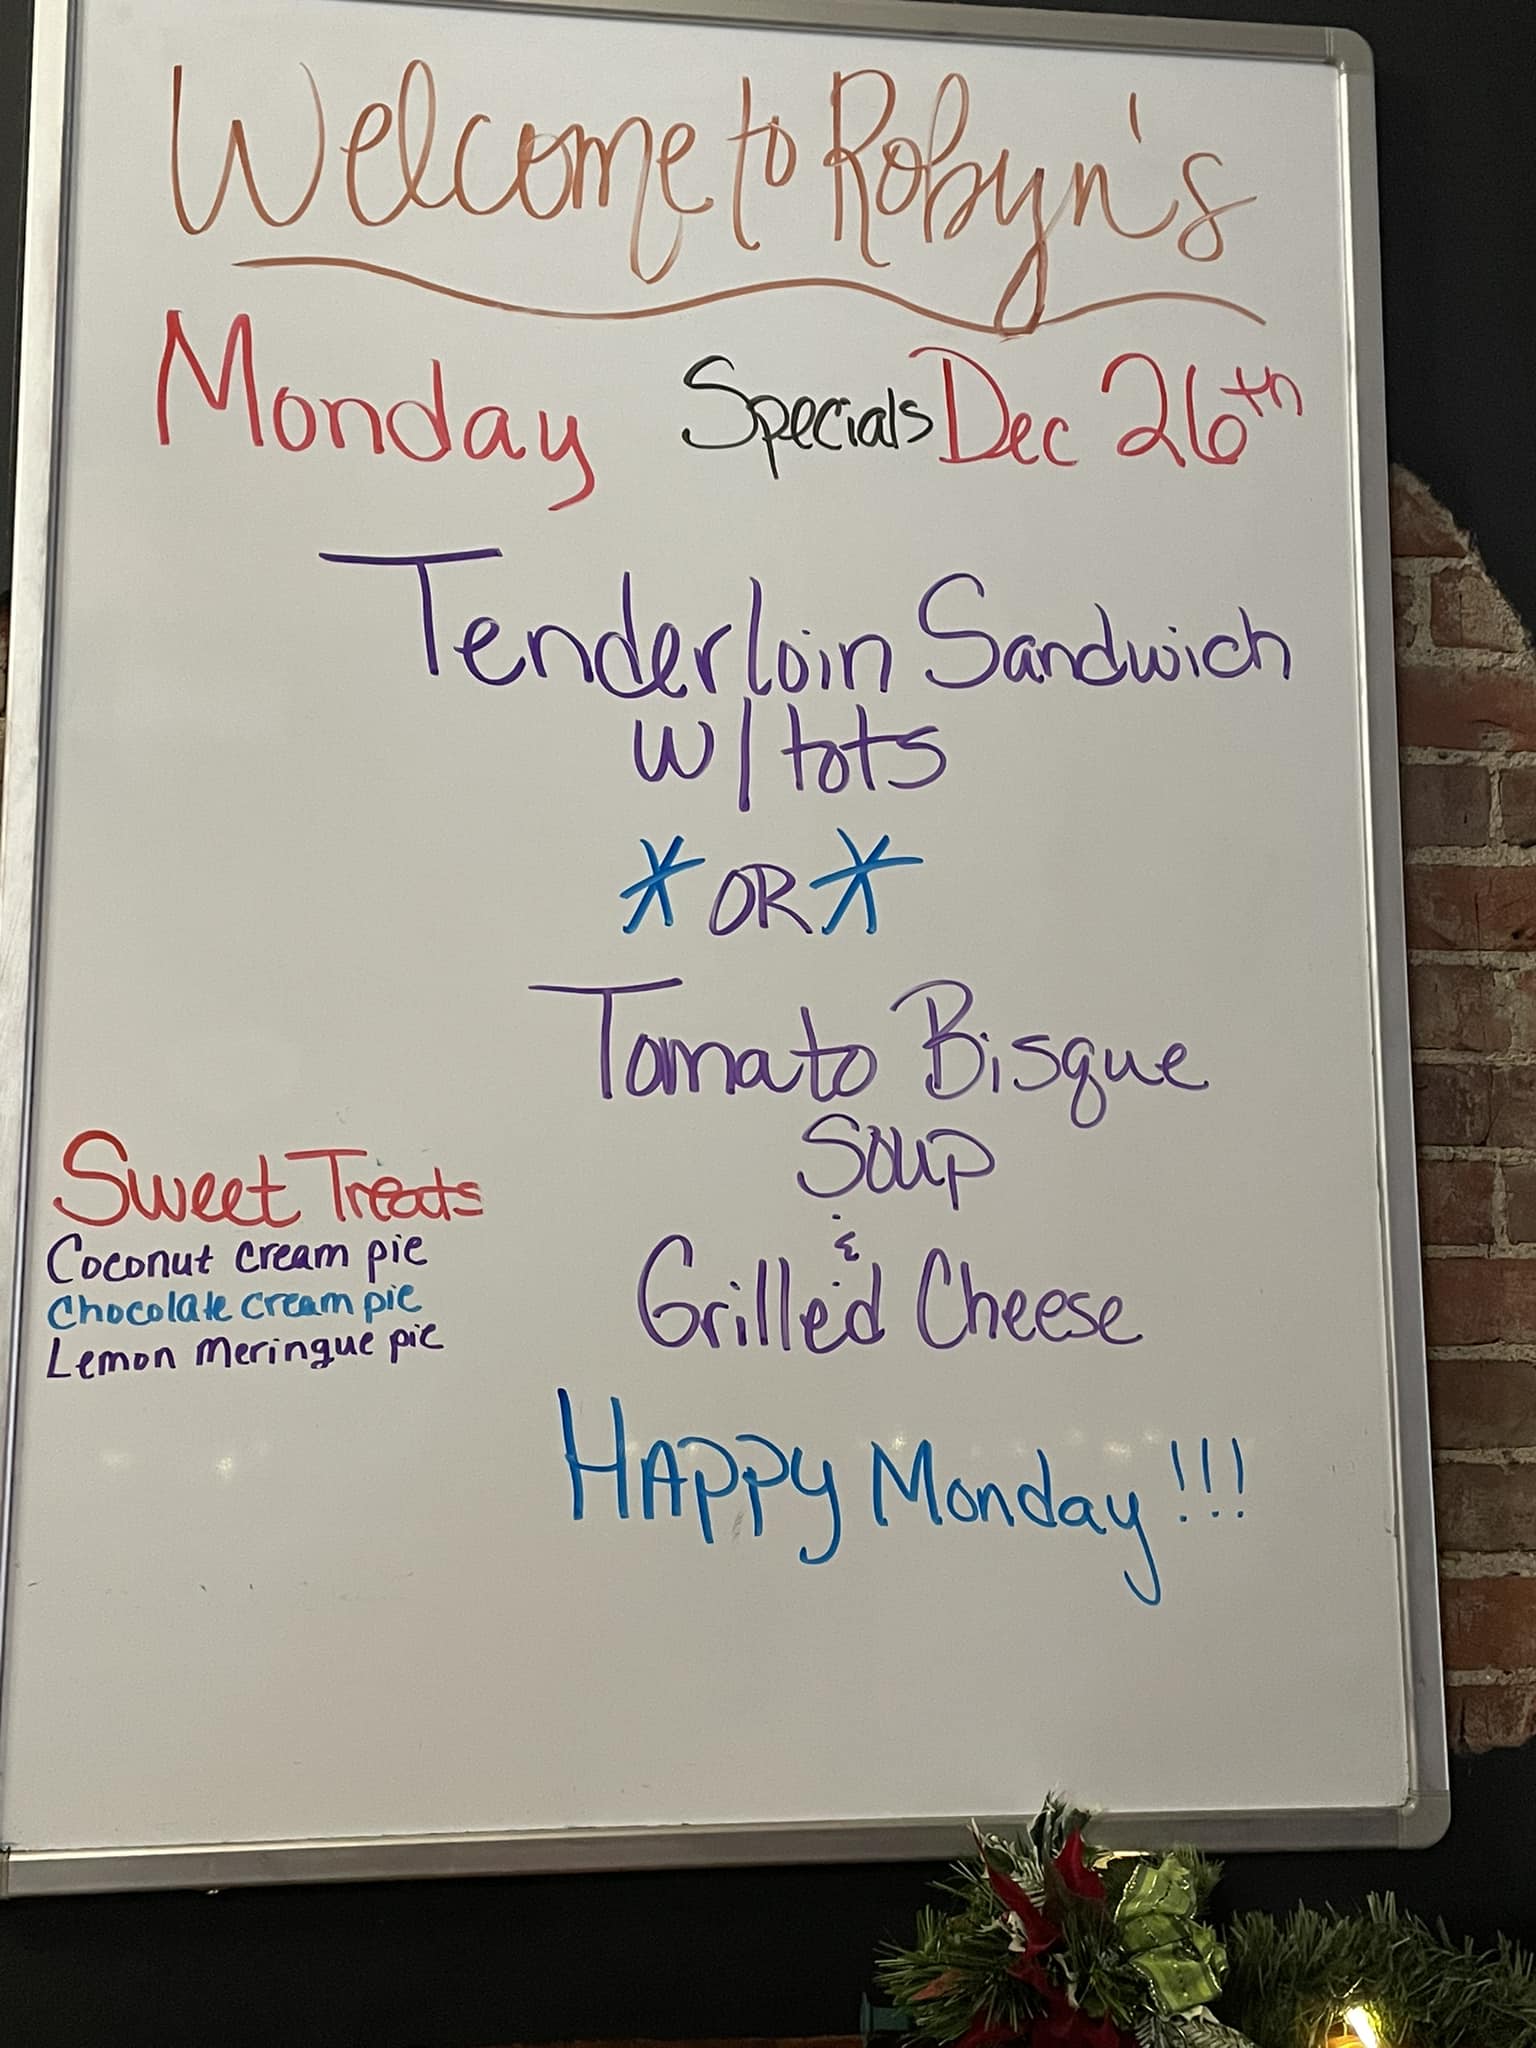 Welcome to Robyn's
Monday Specials Dec 26th
Tenderloin Sandwich
w/ tots
* OR *
Tomato Bisque
Soup
&
Grilled Cheese
Sweet Treats
Coconut cream pie
Chocolate cream pie
Lemon Meringue pie
HAPPY Monday!!!